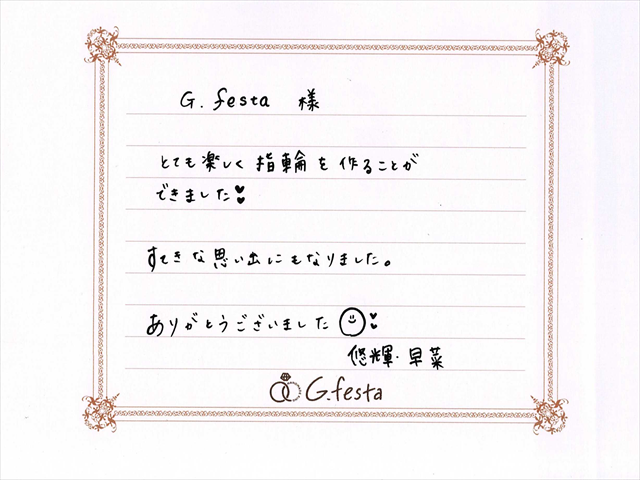 G. festa 様
とても楽しく指輪を作ることが
できました
すてきな思い出にもなりました。
ありがとうございました
悠輝・早菜
G.festa